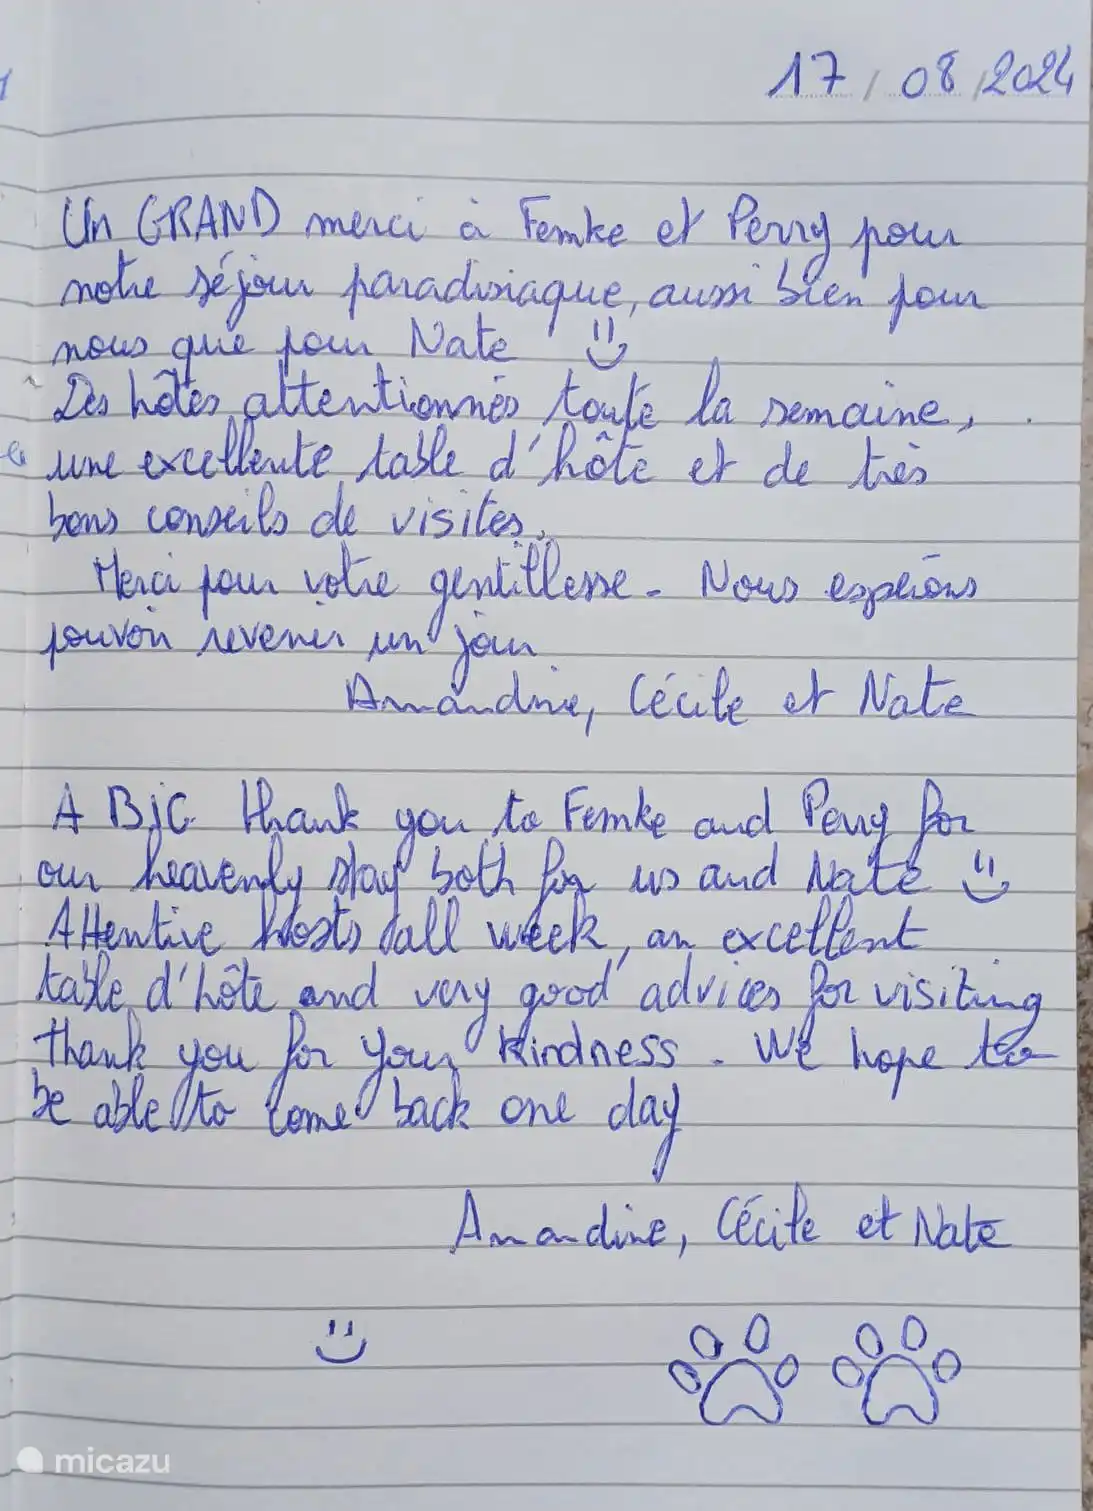 17/08/2024
Un GRAND merci à Femke et Perry pour
notre séjour paradisiaque, aussi bien pour
nous que pour Nate
Des hôtes attentionnés toute la semaine,
une excellente table d'hôte et de très
bons conseils de visites.
Merci pour votre gentillesse. Nous espérons
pouvoir revenir un jour
Amandine, Cécile et Nate
A BIG thank you to Femke and Perry for
our heavenly stay both for us and Nate
Attentive hosts all week, an excellent
table d'hôte and very good advices for visiting
thank you for your kindness. We hope to
be able to come back one day
Amandine, Cécile et Nate
micazu